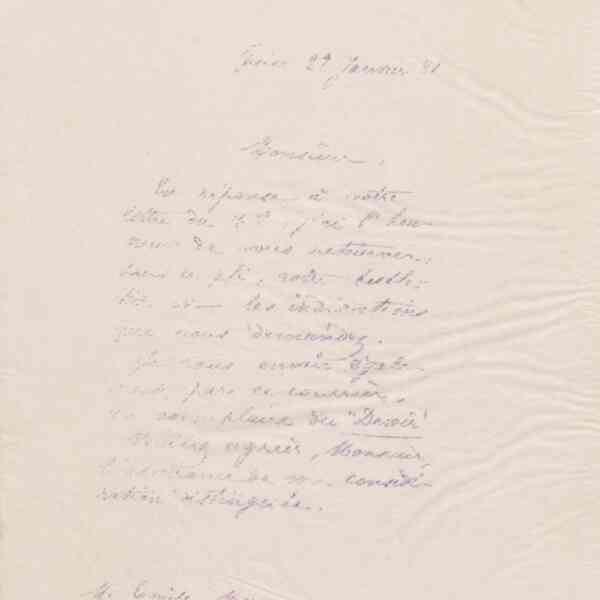 29 Janvier 91
Monsieur,
En réponse à votre
lettre du j'ai l'hon-
neur de vous retourner,
sous ce pli, votre
les indications
que vous demandez.
Je vous envoie égale-
ment, par ce courrier,
exemplaire du "Devoir"
Veuillez agréer, Monsieur,
l'assurance de ma considé-
ration distinguée.
M. Emile